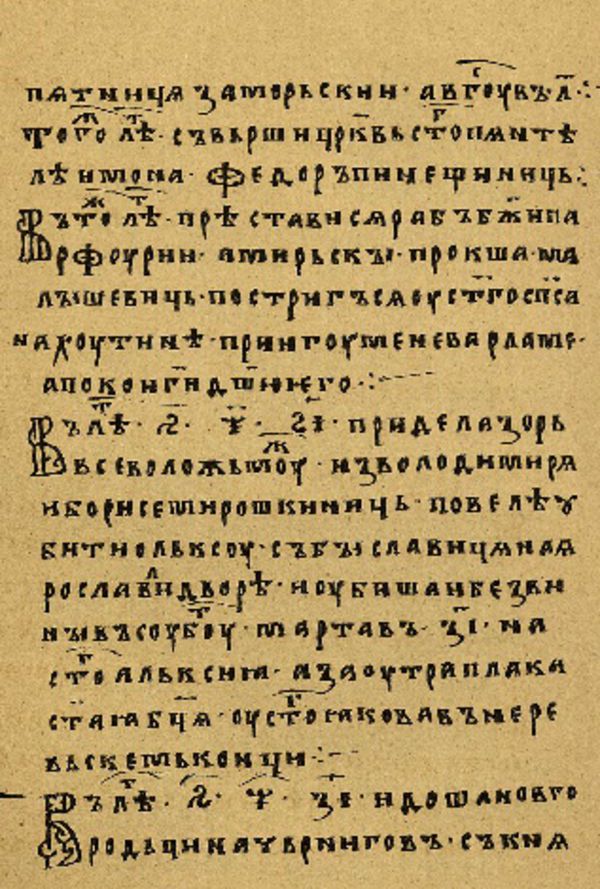 пѧтницѧ заморьскии · авгоу въ л҃ ⁘
Тогоⷤ лѣⷮ · съвьрши цр҃квь стго пантѣ
лѣимона · федоръ пинещиничь ⁘
Въ тоⷤ лѣⷮ · прѣставися рабъ бж҃ии па
рфоурии · а мирьскꙑ · прокша · ма
лꙑшевичь · постригъсѧ оу ст҃го сп҃са
на хоутинѣ · при игоумене варламе ·
а покои г҃и дш҃ю ѥго · ⁘
Въ лѣⷮ · ҂ѕ҃ · ѱ҃ · ѕ҃ı · приде лазорь
вьсеволожь моуⷤ · из володимирѧ
и борисе мирошкиничь · повелѣ ꙋ
бити ольксоу · събꙑславицѧ на ꙗ
рославли дворѣ · и оубиша и без ви
нꙑ въ соуⷠтоу · марта въ · з҃ı · на
ст҃го альксиꙗ · а заоутра плака
ст҃аꙗ б҃цѧ · оу ст҃го ꙗкова въ нере
вьскемь конци ⁘
Въ лѣⷮ · ҂ѕ҃ · ѱ҃ · з҃ı · идоша новго
родьци на чьрниговъ · съ кнѧ